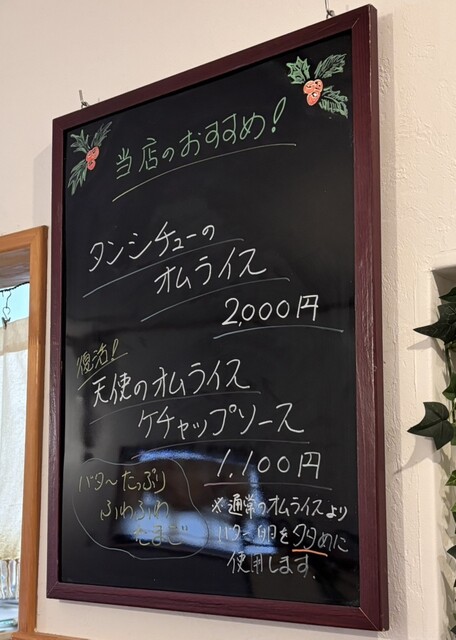 当店のおすすめ!
タンシチューの
オムライス
2,000円
復活!
天使のオムライス
ケチャップソース
1,100円
バターたっぷり
ふわふわ
たまご
※通常のオムライスより
バター卵を多めに
使用します。